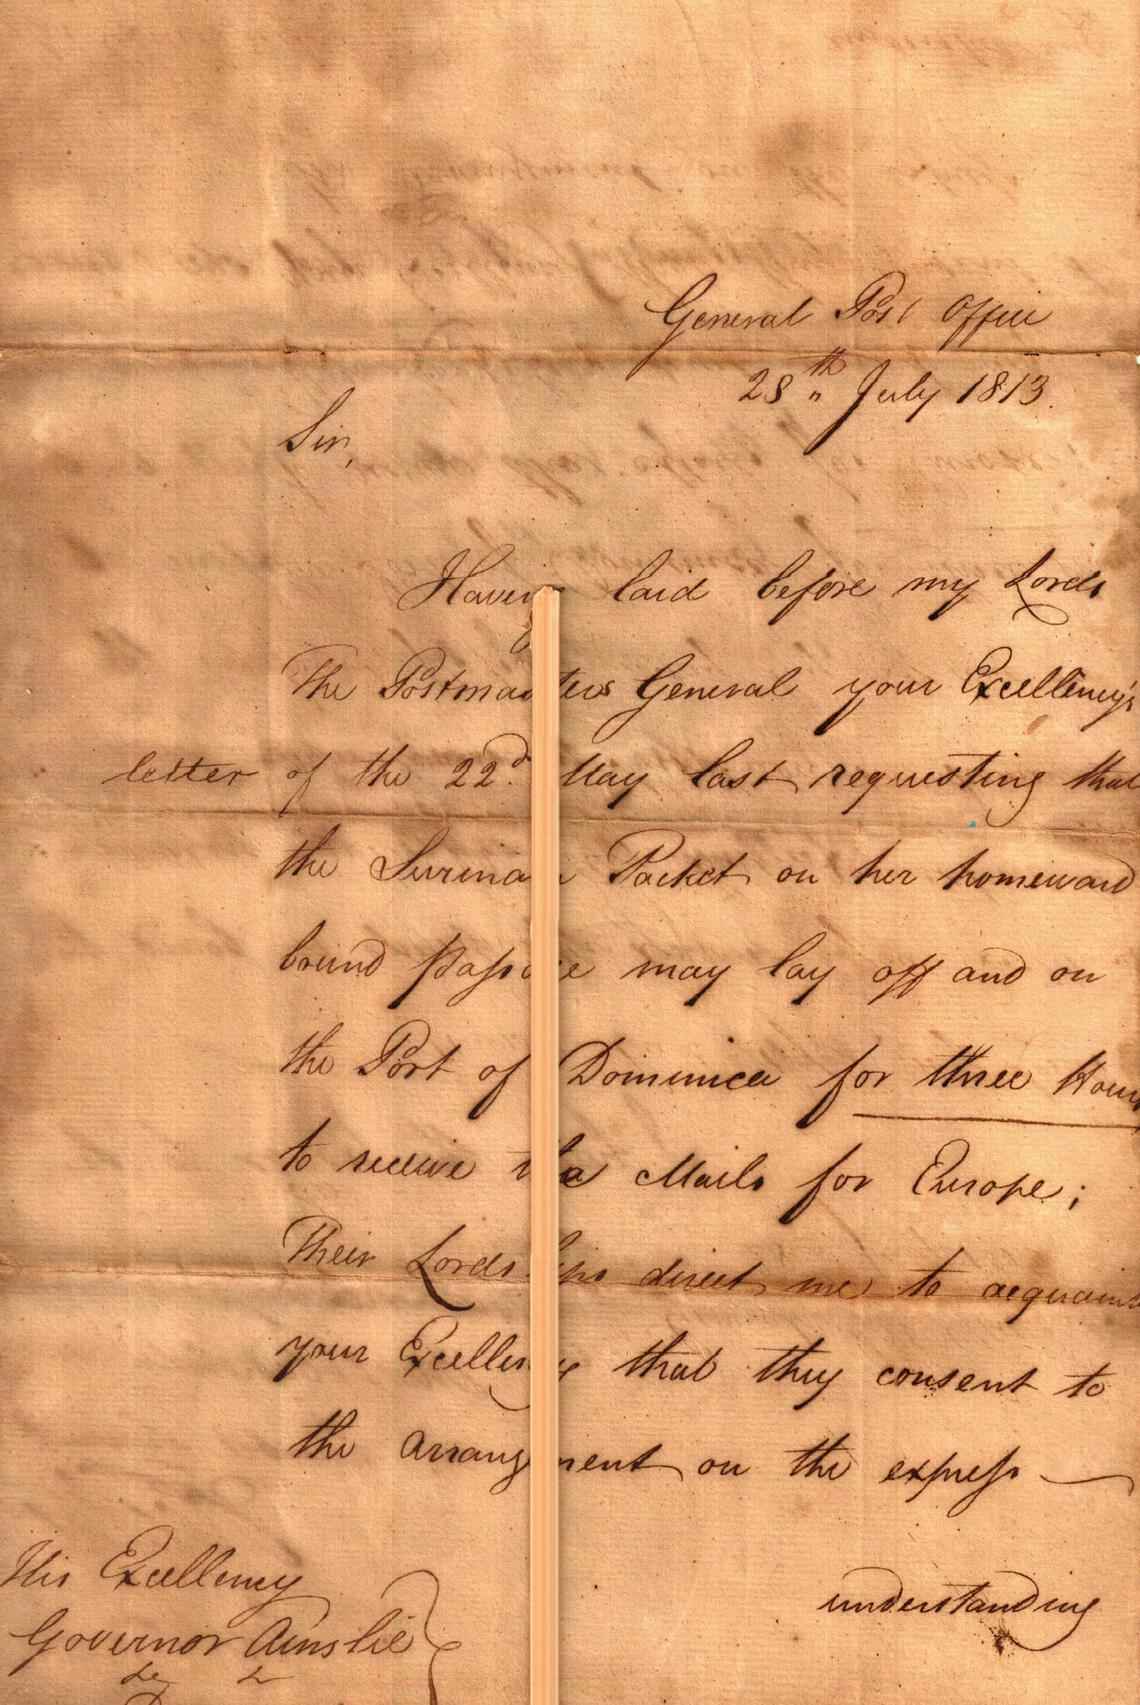 General Post Office
28th July 1813.
Sir,
Having laid before my Lords
The Postmasters General your Excellency's
letter of the 22d May last requesting that
the Surinam Packet on her homeward
bound passage may lay off and on
the Port of Dominica for three Hours
to receive the Mails for Europe;
Their Lordships direct me to acquaint
your Excellency that they consent to
the arrangement on the express
understanding
His Excellency
Governor Ainslie